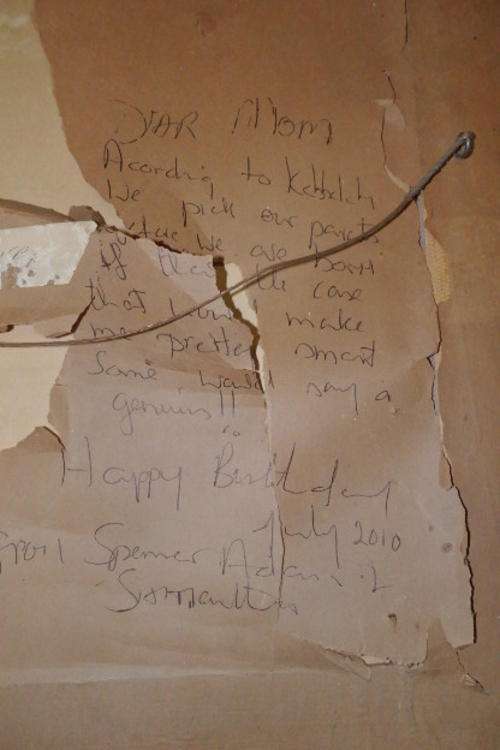 DEAR MOM
According to Kabbalah
We pick our parents
before we are born
if that is the case
that would make
me pretty smart
Some would say a
genius!!
Happy Birthday
July 2010
From Spencer Adam &
Samantha